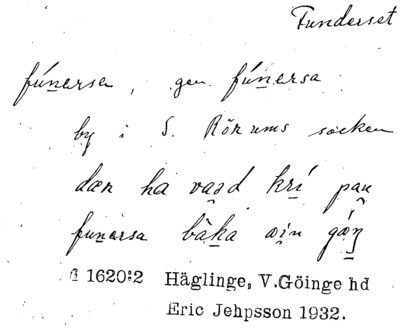 Funderset
fúnersen, gen. fúnersa.
by i S. Rörums socken
dær ha vaʒd krí pau
funersa båka æin gáŋ
1620:2 Häglinge, V.Göinge hd
Eric Jehpsson 1932.